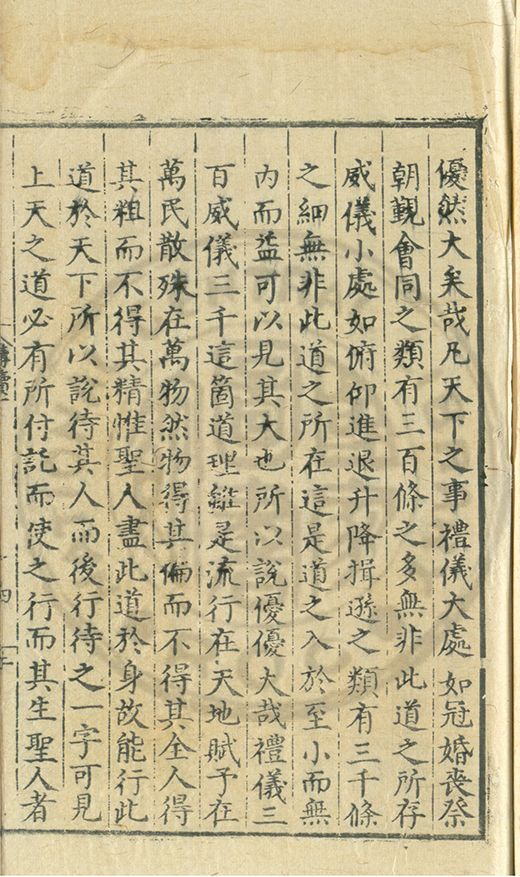 優然大矣哉凡天下之事禮儀大處如冠婚喪祭
朝覲會同之類有三百條之多無非此道之所存
威儀小處如俯仰進退升降揖遜之類有三千條
之細無非此道之所在這是道之入於至小而無
內而益可以見其大也所以說優優大哉禮儀三
百威儀三千這箇道理雖是流行在天地賦予在
萬民散殊在萬物然物得其偏而不得其全人得
其粗而不得其精惟聖人盡此道於身故能行此
道於天下所以說待其人而後行待之一字可見
上天之道必有所付託而使之行而其生聖人者
四